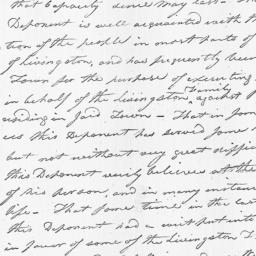 that Capacity
Deponent is well acquainted with the
tion of the people in most parts of
of Livingston, and has frequently been
Town for the purpose of executing
in behalf of the Livingston Family against
residing in said Town – That in some
ces this Deponent has served some
but not without very great diffic
this Deponent verily believes at the
of his person, and in many instan
life – That some time in the
this Deponent had a writ put into
in favor of some of the Livingston F